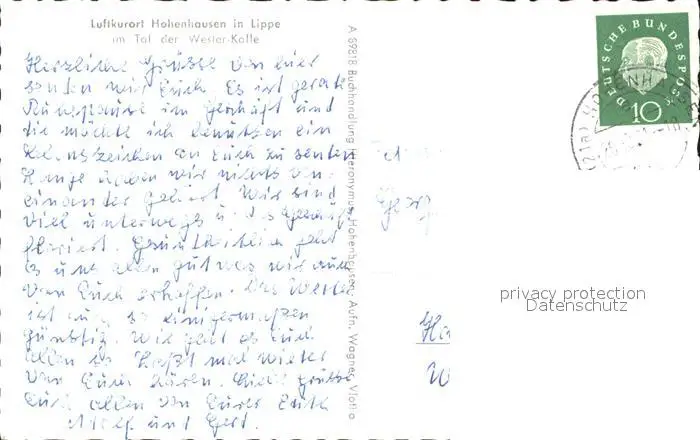 Luftkurort Hohenhausen in Lippe
im Tal der Wester-Kalle
Herzliche Grüsse von hier
senden wir Euch. Es ist gerade
Ruhepause im Geschäft und
die möchte ich benutzen ein
Lebenszeichen an Euch zu senden
Lange haben wir nichts von
einander gehört. Wir sind
viel unterwegs u. das Geschäft
floriert. Gesundheitlich geht
es uns allen gut was wir auch
von Euch erhoffen. Das Wetter
ist auch so einigermaßen
günstig. Wie geht es Euch
allen so laßt mal wieder
von Euch hören. Viele Grüsse
Euch allen von Eurer
und Gert.
A 6981 B. Buchhandlung Hieronymus, Hohenhausen, Aufn. Wagner, Vlotho
DEUTSCHE BUNDESPOST
10
(21a) HOHENHAUSEN
Georg
privacy protection
Datenschutz